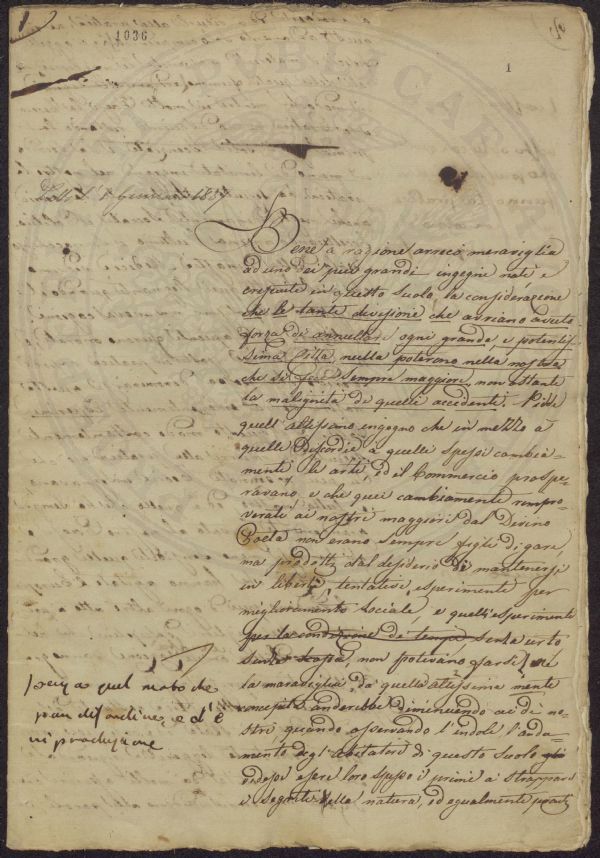 1
1036
1
1839
Bene a ragione arrecò meraviglia
ad uno dei piu grandi ingegni nati, e
cresciuti in questo suolo, la considerazione
che le tante divisioni che avriano avuto
forza di annullare ogni grande e potentis
sima Città, nulla poterono nella nostra
che si fece sempre maggiore, non ostante
la malignità di quelli accidenti. Vidde
quell'altissimo ingegno che in mezzo a
quelle Discordie a quelli spessi cambia-
menti le arti, ed il Commercio prospe-
ravano, e che quei cambiamenti rimpro-
verati ai nostri maggiori dal Divino
Poeta non erano sempre figli di gare,
ma prodotti dal desiderio di mantenersi
in libertà, tentativi, esperimenti per
miglioramento sociale, e quelli esperimenti
per la condizione di tempi, senza urto
senza scossa, non potevano farsi
la maraviglia da quella altissima mente
concepita anderebbe diminuendo ai dì no-
stri quando osservando l'indole l'anda-
mento degl'abitatori di questo suolo
vedesi essere loro spesso i primi a strappare
i segreti della natura, ed egualmente
senza quel moto che
pare disordine, ed è
riproduzione